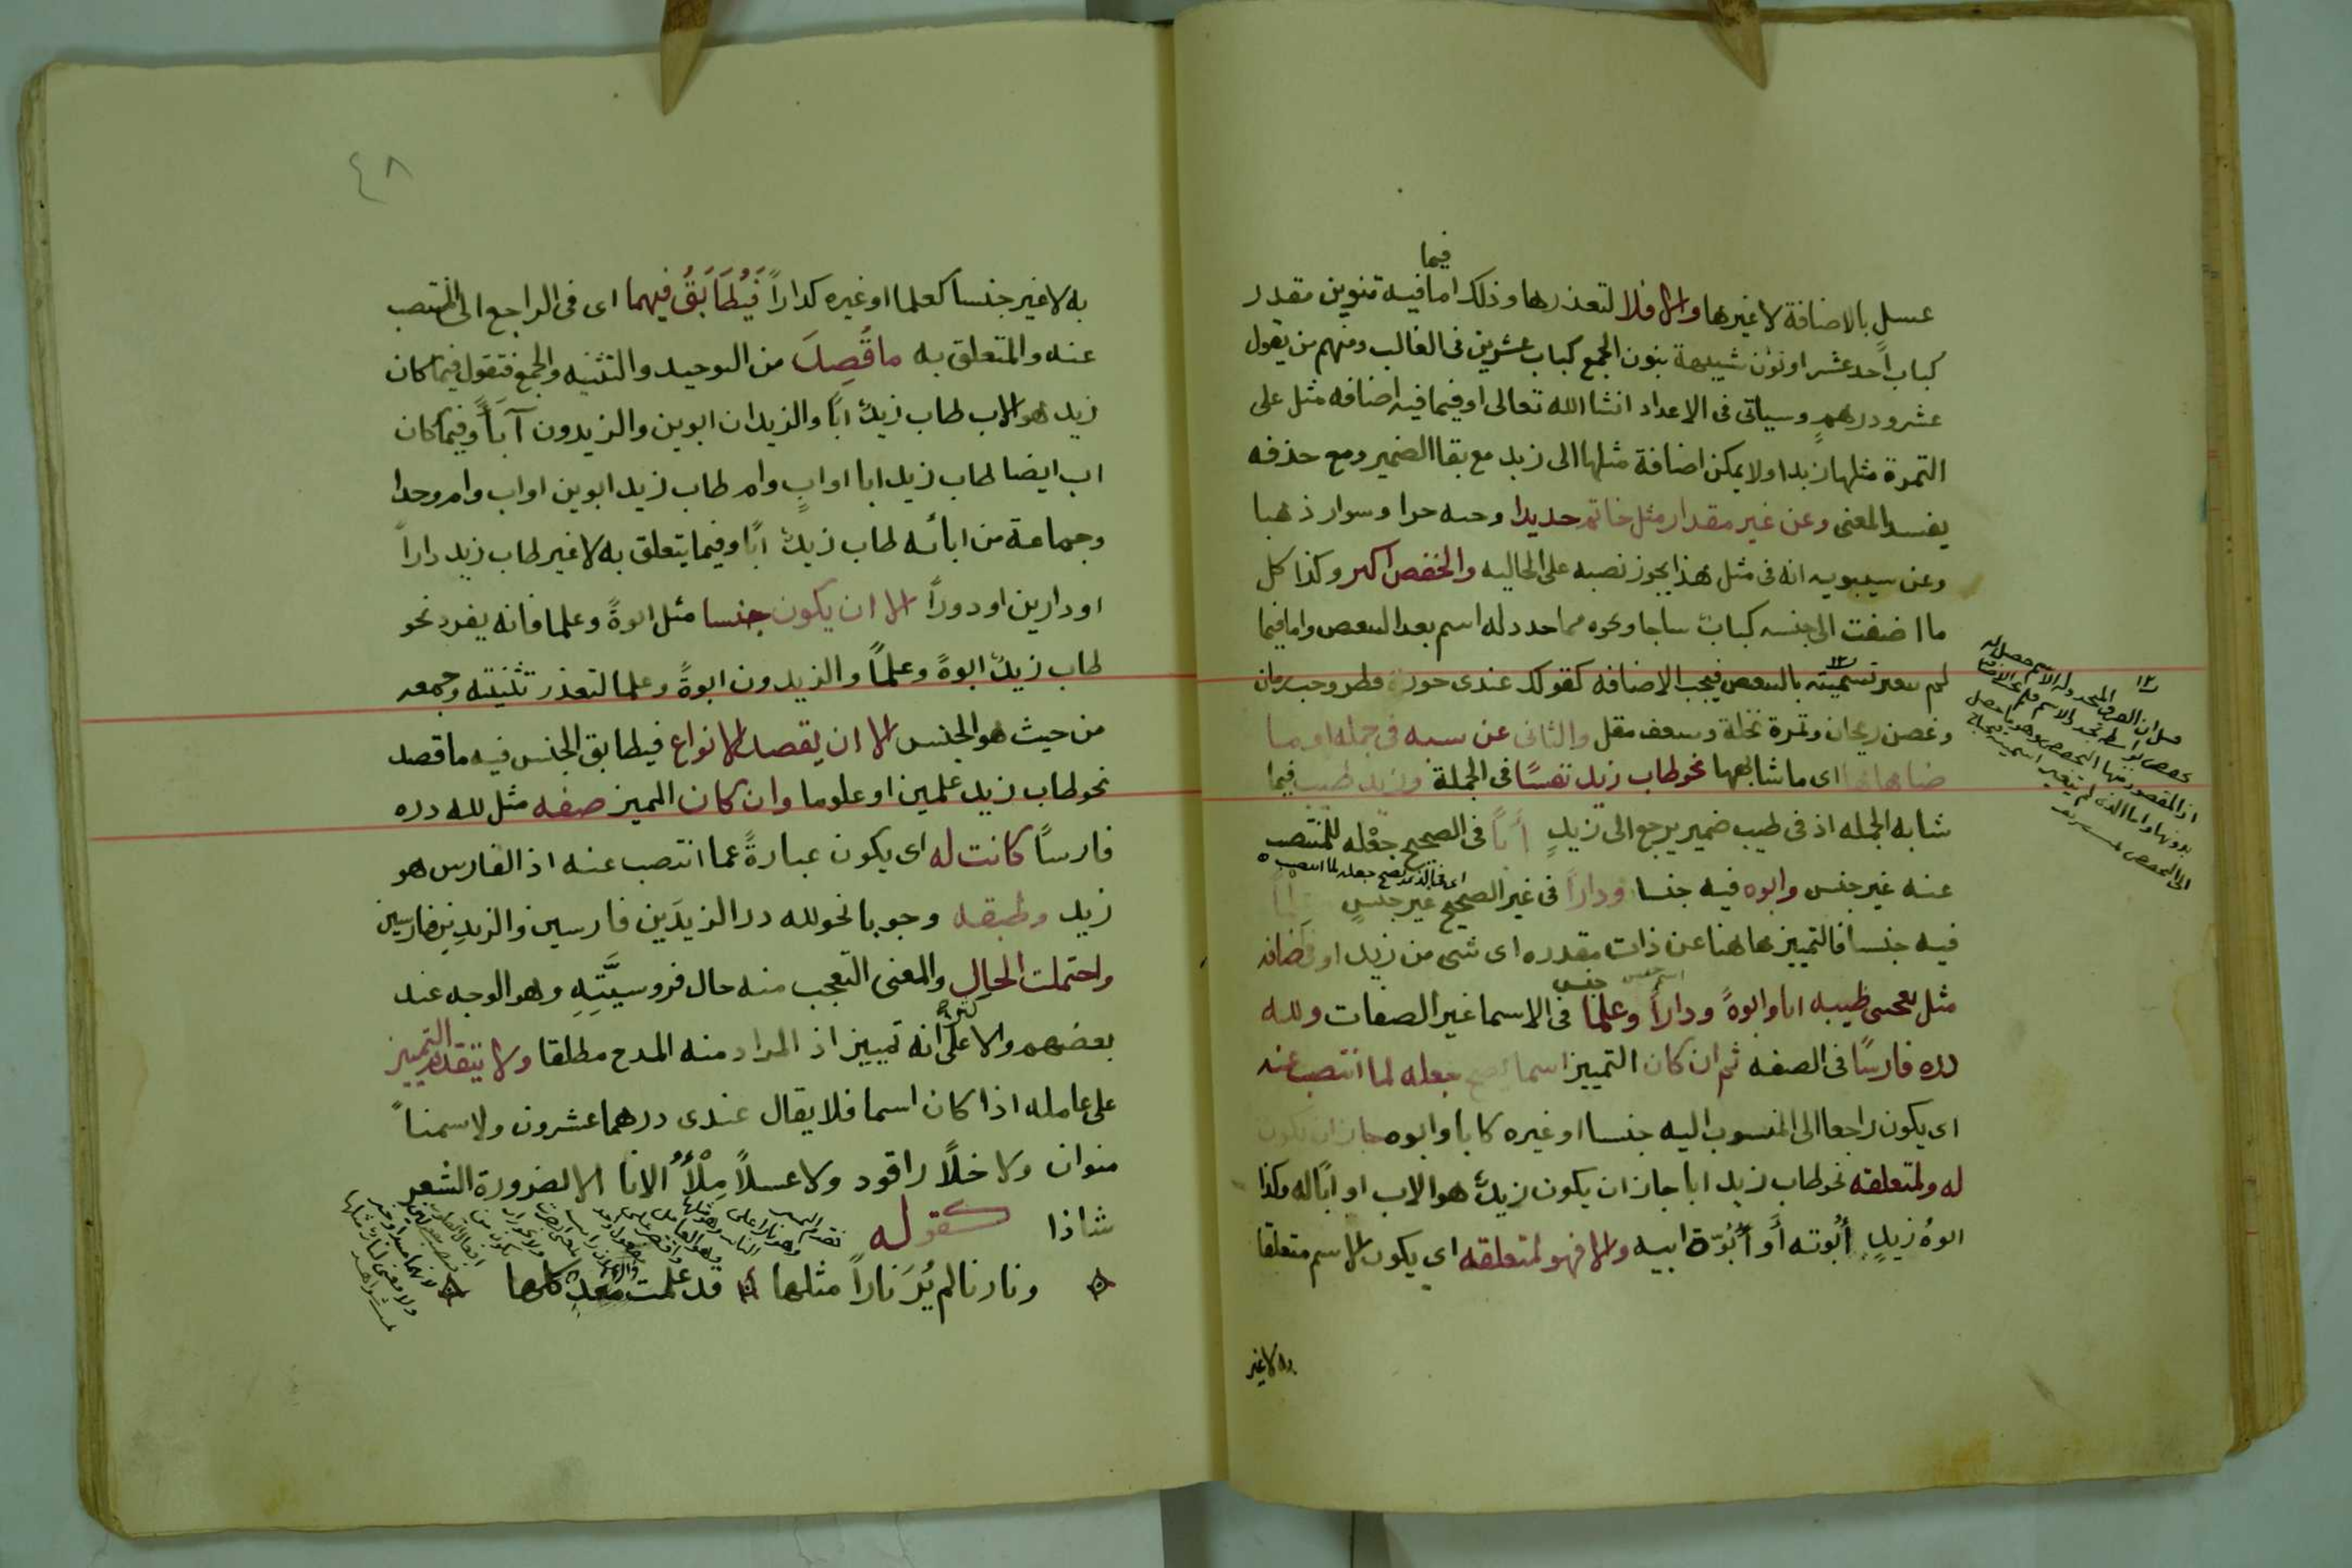 فيما
عسلٍ بالاضافة لا غيرها والا فلا لتعذرها وذلك اما فيه تنوين مقدر
كباب احد عشر او نون شبيهة بنون الجمع كباب عشرين فى الغالب ومنهم من يقول
عشرو درهمٍ وسياتى فى الاعداد انشا الله تعالى او فيما فيه اضافه مثل على
التمرة مثلها زبدا ولا يمكن اضافة مثلها الى زبد مع بقا الضمير ومع حذفه
يفسد المعنى وعن غير مقدار مثل خاتم حديدا وجبه خزا وسوار ذهبا
وعن سيبويه انه فى مثل هذا يجوز نصبه على الحاليه والخفض اكثر وكذا كل
ما اضفت الى جنسه كباب ساجا ونحوه مما حدد له اسم بعد التبعيض واما فيما
لم يتغير تسميته بالتبعيض فيجب الاضافه كقولك عندى جوزة قطن وحب رمان
وغصن ريحان وتمرة نخلة وسعف مقل والثانى عن نسبه فى جمله او ما
ضاهاها اى ما شابهها نحو طاب زيد نفسًا فى الجملة وزيد طيب فيما
شابه الجمله اذ فى طيب ضمير يرجع الى زيدٍ أبًا فى الصحيح جعْله للمنتصب
عنه غير جنس وابوه فيه جنسا ودارًا فى غير الصحيح غير جنسٍ وعلمًا
فيه جنسا فالتمييز هاهنا عن ذات مقدره اى شى من زيد او فى اضافه
مثل يعجبنى طيبه ابا وابوةً ودارًا وعلمًا فى الاسما غير الصفات ولله
دره فارسًا فى الصفه ثم ان كان التمييز اسما يصح جعله لما انتصب عنه
اى يكون راجعا الى المنسوب اليه جنسا او غيره كابا وابوه جاز ان يكون
له ولمتعلقه نحو طاب زيد ابا جاز ان يكون زيدٌ هو الاب او ابًا له وكذا
ابوةُ زيدٍ أبُوته أو أبُوّة ابيه والا فهو لمتعلقه اى يكون الاسم متعلقا
به لا غير
٤٨
به لا غير جنسا كعلما او غيره كدارًا فَيُطَابَقُ فيهما اى فى الراجع الى المنتصب
عنه والمتعلق به ما قُصِدَ من التوحيد والتثنيه والجمع فتقول فيما كان
زيد هو الاب طاب زيدٌ ابًا والزيدان ابوين والزيدون آبآً وفيما كان
اب ايضا طاب زيد ابا او ابٍ وام طاب زيد ابوين او اب وام وجدا
وجماعة من ابائه طاب زيدٌ ابًا وفيما يتعلق به لا غير طاب زيد دارًا
او دارين او دورًا الا ان يكون جنسا مثل ابوةً وعلما فانه يفرد نحو
طاب زيدٌ ابوةً وعلمًا والزيدون ابوةً وعلما لتعذر تثنيته وجمعه
من حيث هو الجنس الا ان يقصد الانواع فيطابق الجنس فيه ما قصد
نحو طاب زيد علمين او علوما وان كان المميز صفه مثل لله دره
فارسًا كانت له اى يكون عبارةً عما انتصب عنه اذ الفارس هو
زيد وطبقه وجوبا نحو لله در الزيدَين فارسين والزيدِين فارسين
واحتملت الحال والمعنى التعجب منه حال فروسيَّتِهِ وهو الوجه عند
بعضهم والاكثر على انه تمييز اذ المراد منه المدح مطلقا ولا يتقدم التمييز
على عامله اذا كان اسما فلا يقال عندى درهما عشرون ولا سمنًا
منوان ولا خلًا راقود ولا عسلًا مِلْأُ الانا الا لضرورة الشعر
شاذا كقوله
ونارنا لم يُرَ نارًا مثلها قد علمت معد كلها